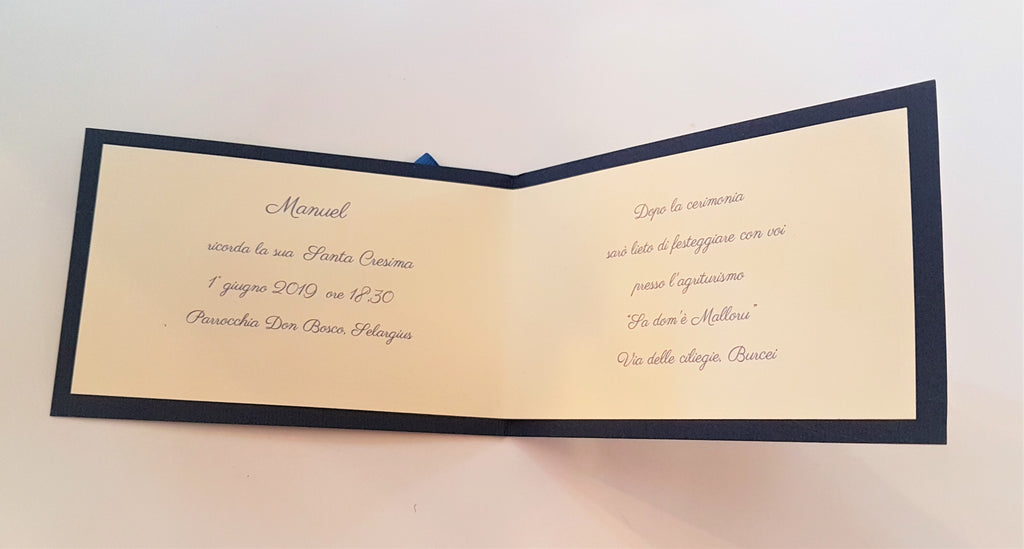 Manuel
ricorda la sua Santa Cresima
1° giugno 2019 ore 18,30
Parrocchia Don Bosco, Selargius
Dopo la cerimonia
sarò lieto di festeggiare con voi
presso l'agriturismo
"Sa dom'è Malloru"
Via delle ciliegie, Burcei